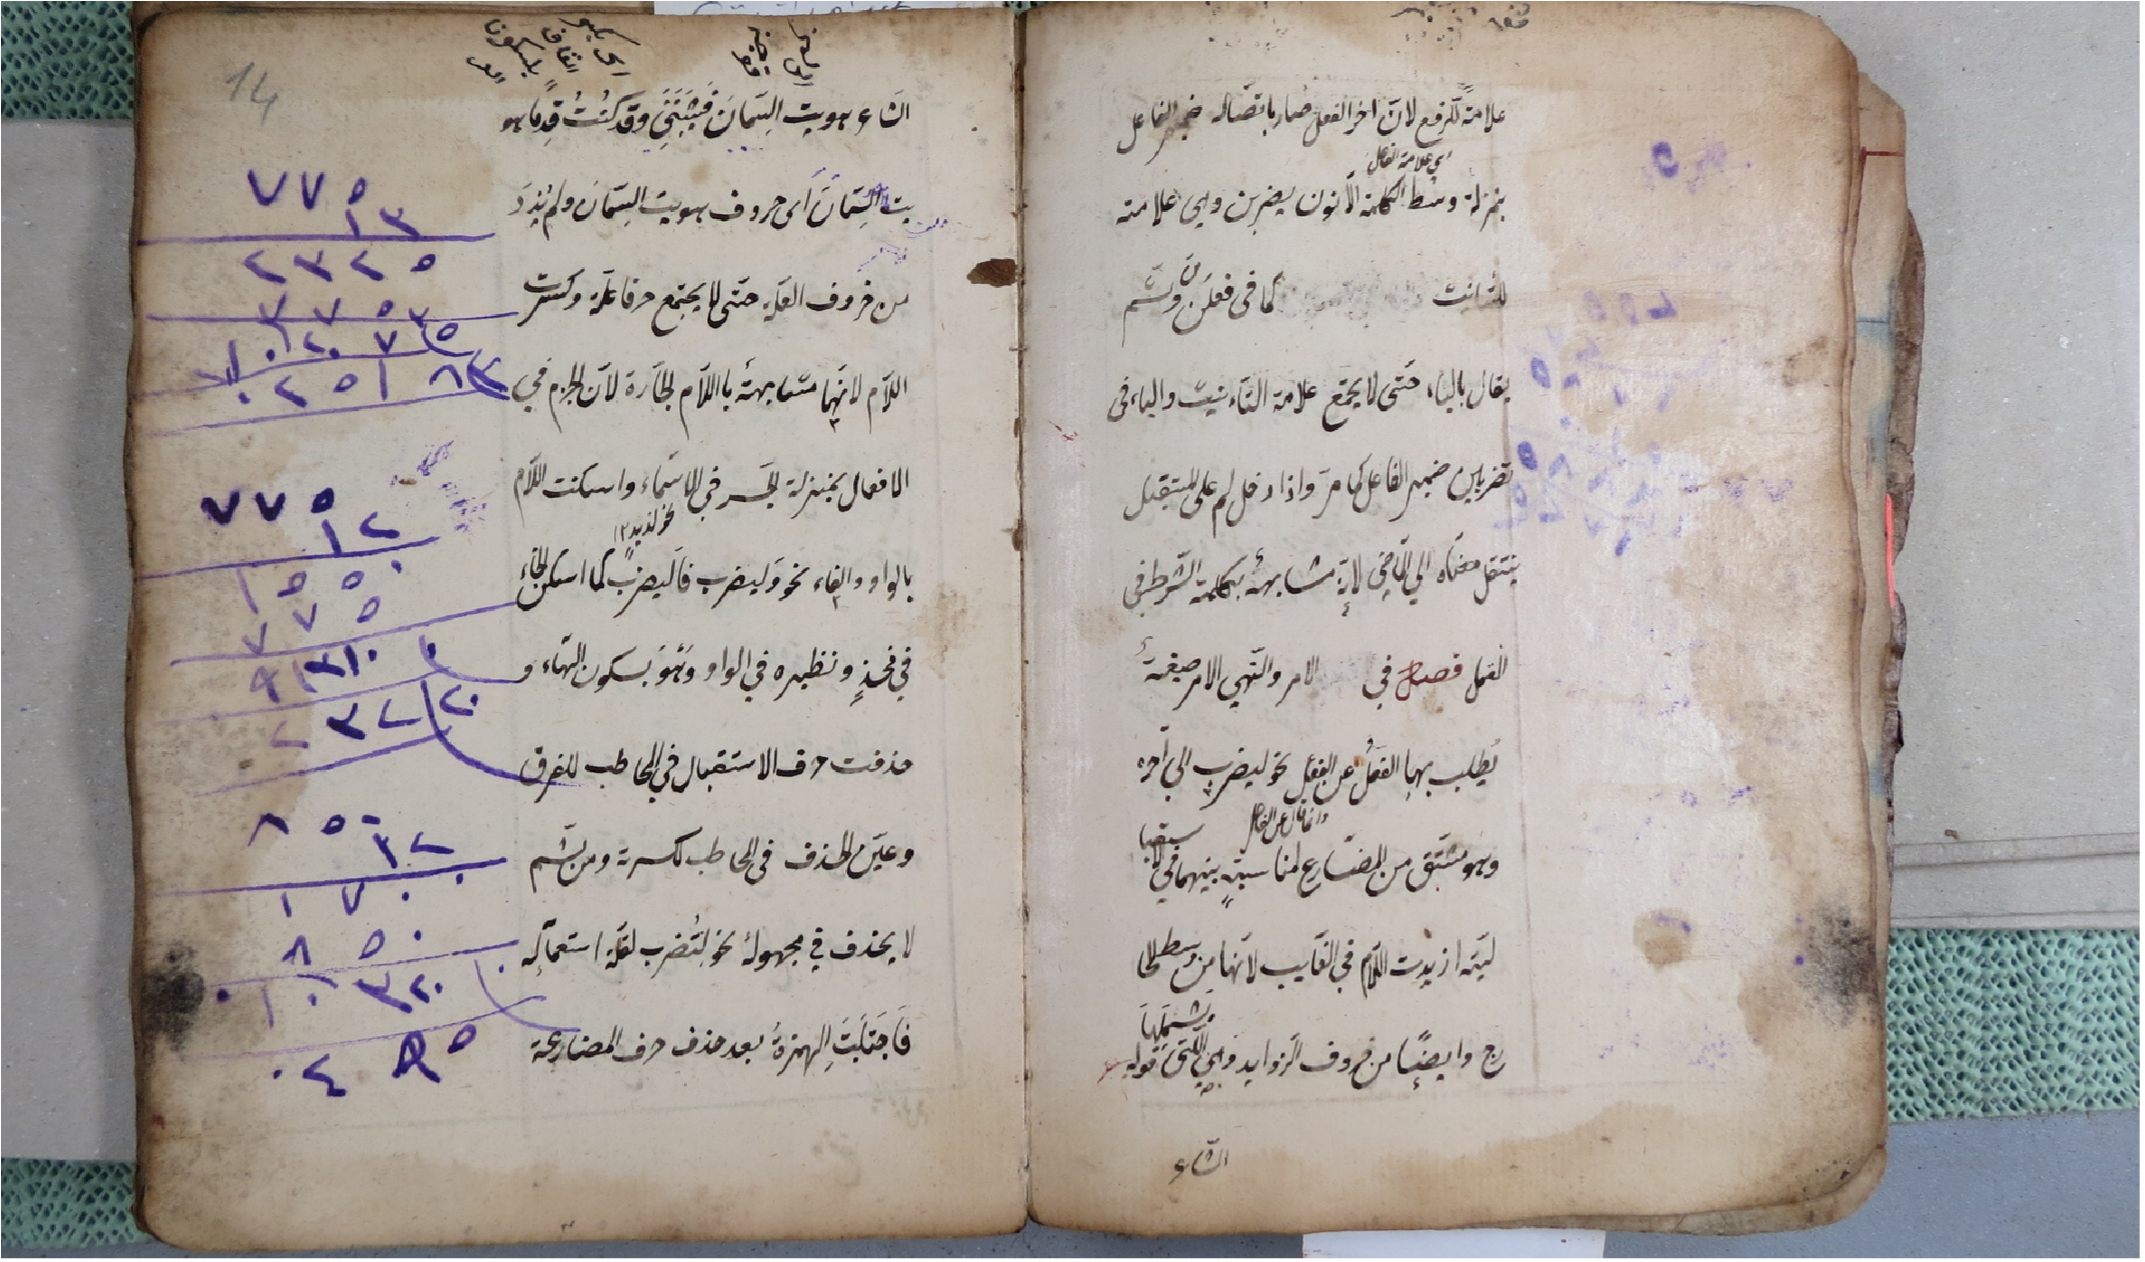 علامة للرفع لان اخر الفعل صار باتصاله ضمير الفاعل
اى علامة الفاعل
بمنزلة وسط الكلمة الا نون يضربن وهي علامة
للتانيث كما فى فعلن ومن ثم
يقال بالياء حتى لا يجتمع علامة التاءنيث والياء فى
تضربين ضمير الفاعل كما مر واذا دخل لم على المستقبل
ينتقل معناه الي الماضي لانه مشابهة بكلمة الشرط فى
الفعل فصل في الامر والنهي الامر صيغة
يطلب بها الفعل عن الفاعل نحو ليضرب الي آخره
وهو مشتق من المضارع لمناسبة بينهما في الا
ستقبا
ليته ازيدت اللام في الغايب لانها من وسط المخا
رج وايضا من حروف الزوايد وهي التى قوله
يشملها
الشاع
14
الشاع هويت السمان فشيبنني وقد كنت قدما هو
يت السمان اى حروف هويت السمان ولم يزد
من حروف العلة حتى لا يجتمع حرفا علة وكسرت
اللام لانها مشابهة باللام الجارة لان الجزم في
الافعال بمنزلة الجر في الاسماء واسكنت اللام
بالواو والفاء نحو وليضرب فاليضرب كما اسكن الخاء
في فخذ ونظيره في الواو وهو بسكون الهاء و
حذفت حرف الاستقبال في المخاطب للفرق
وعين الحذف فى المخاطب لكسرته ومن ثم
لا يحذف في مجهوله نحو لتضرب لقلة استعماله
فاجتلبت الهمزة بعد حذف حرف المضارعة
٧٧٥
١٣
٢٣٢٥
٧٧٥
٧٧٥
١٢
١٥٥٠
٧٧٥
٨٥٠
١٢
١٧٠٠
٨٥٠